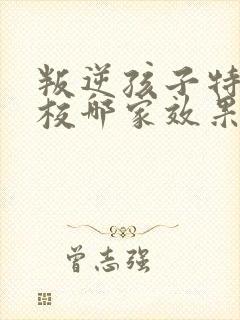 叛逆孩子特
校哪家效果
曾志强